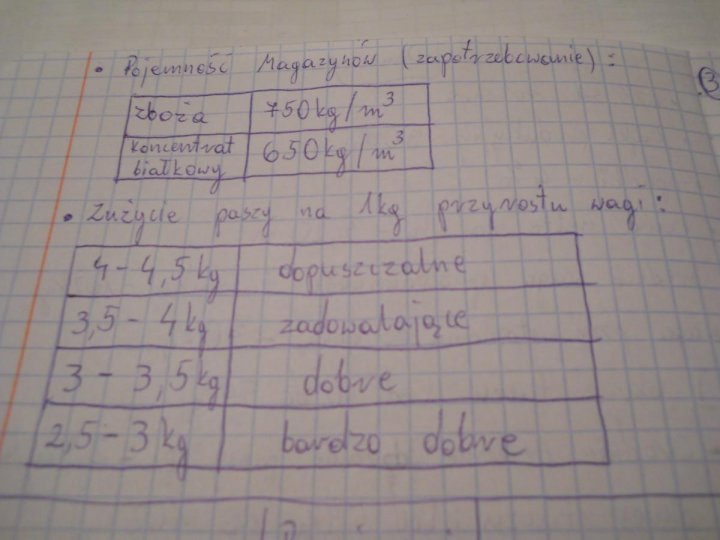 • Pojemność Magazynów (zapotrzebowanie):
3
zboża 750kg/m³
koncentrat białkowy 650kg/m³
• Zużycie paszy na 1kg przyrostu wagi:
4 – 4,5kg dopuszczalne
3,5 – 4kg zadowalające
3 – 3,5kg dobre
2,5 – 3kg bardzo dobre